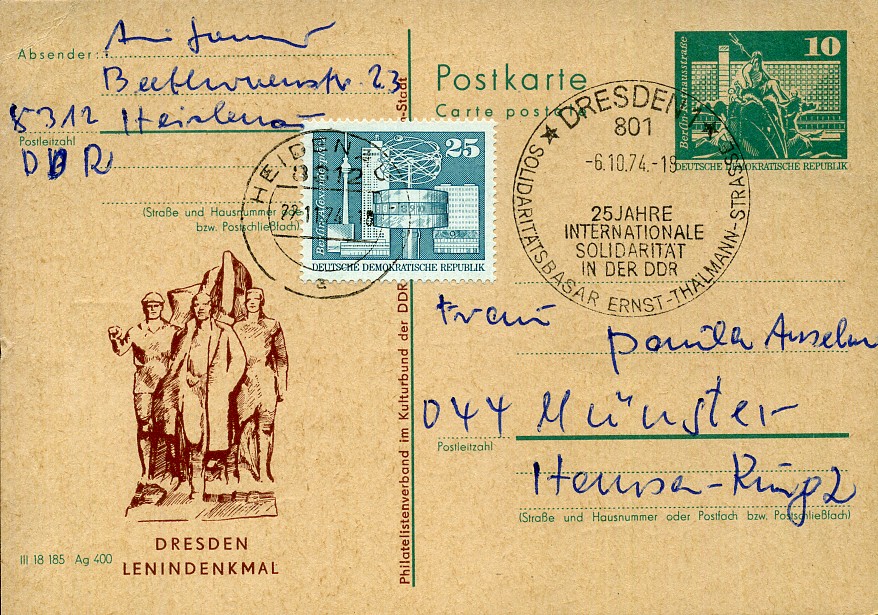 Absender:
Beethovenstr. 23
8312 Heidenau
Postleitzahl
DDR
(Straße und Hausnummer oder
bzw. Postschließfach)
HEIDENAU
8312
22.11.74
a
Berlin-Alexanderplatz
25
DEUTSCHE DEMOKRATISCHE REPUBLIK
Postkarte
Carte postale
Berlin-Rathausstraße
10
DEUTSCHE DEMOKRATISCHE REPUBLIK
DRESDEN 1
801
-6.10.74.-19
25 JAHRE
INTERNATIONALE
SOLIDARITÄT
IN DER DDR
SOLIDARITÄTSBASAR ERNST-THÄLMANN-STRASSE
Frau
Anselm
044 Münster
Postleitzahl
Ring 2
(Straße und Hausnummer oder Postfach bzw. Postschließfach)
Philatelistenverband im Kulturbund der DDR -Stadt
DRESDEN
LENINDENKMAL
III 18 185 Ag 400